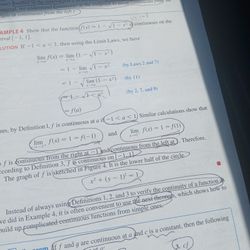 EXAMPLE 4 Show that the function f(x) = 1 − √(1 − x²) is continuous on the
interval [−1, 1].
SOLUTION If −1 < a < 1, then using the Limit Laws, we have
lim f(x) = lim (1 − √(1 − x²))
= 1 − lim √(1 − x²) (by Laws 2 and 7)
= 1 − √(lim (1 − x²)) (by 11)
= 1 − √(1 − a²) (by 2, 7, and 9)
= f(a)
Thus, by Definition 1, f is continuous at a if −1 < a < 1. Similar calculations show that
lim f(x) = 1 = f(−1) and lim f(x) = 1 = f(1)
so f is continuous from the right at −1 and continuous from the left at 1. Therefore,
according to Definition 3, f is continuous on [−1, 1].
The graph of f is sketched in Figure 4. It is the lower half of the circle
x² + (y − 1)² = 1
Instead of always using Definitions 1, 2, and 3 to verify the continuity of a function
we did in Example 4, it is often convenient to use the next theorem, which shows how to
build up complicated continuous functions from simple ones.
If f and g are continuous at a and c is a constant, then the following